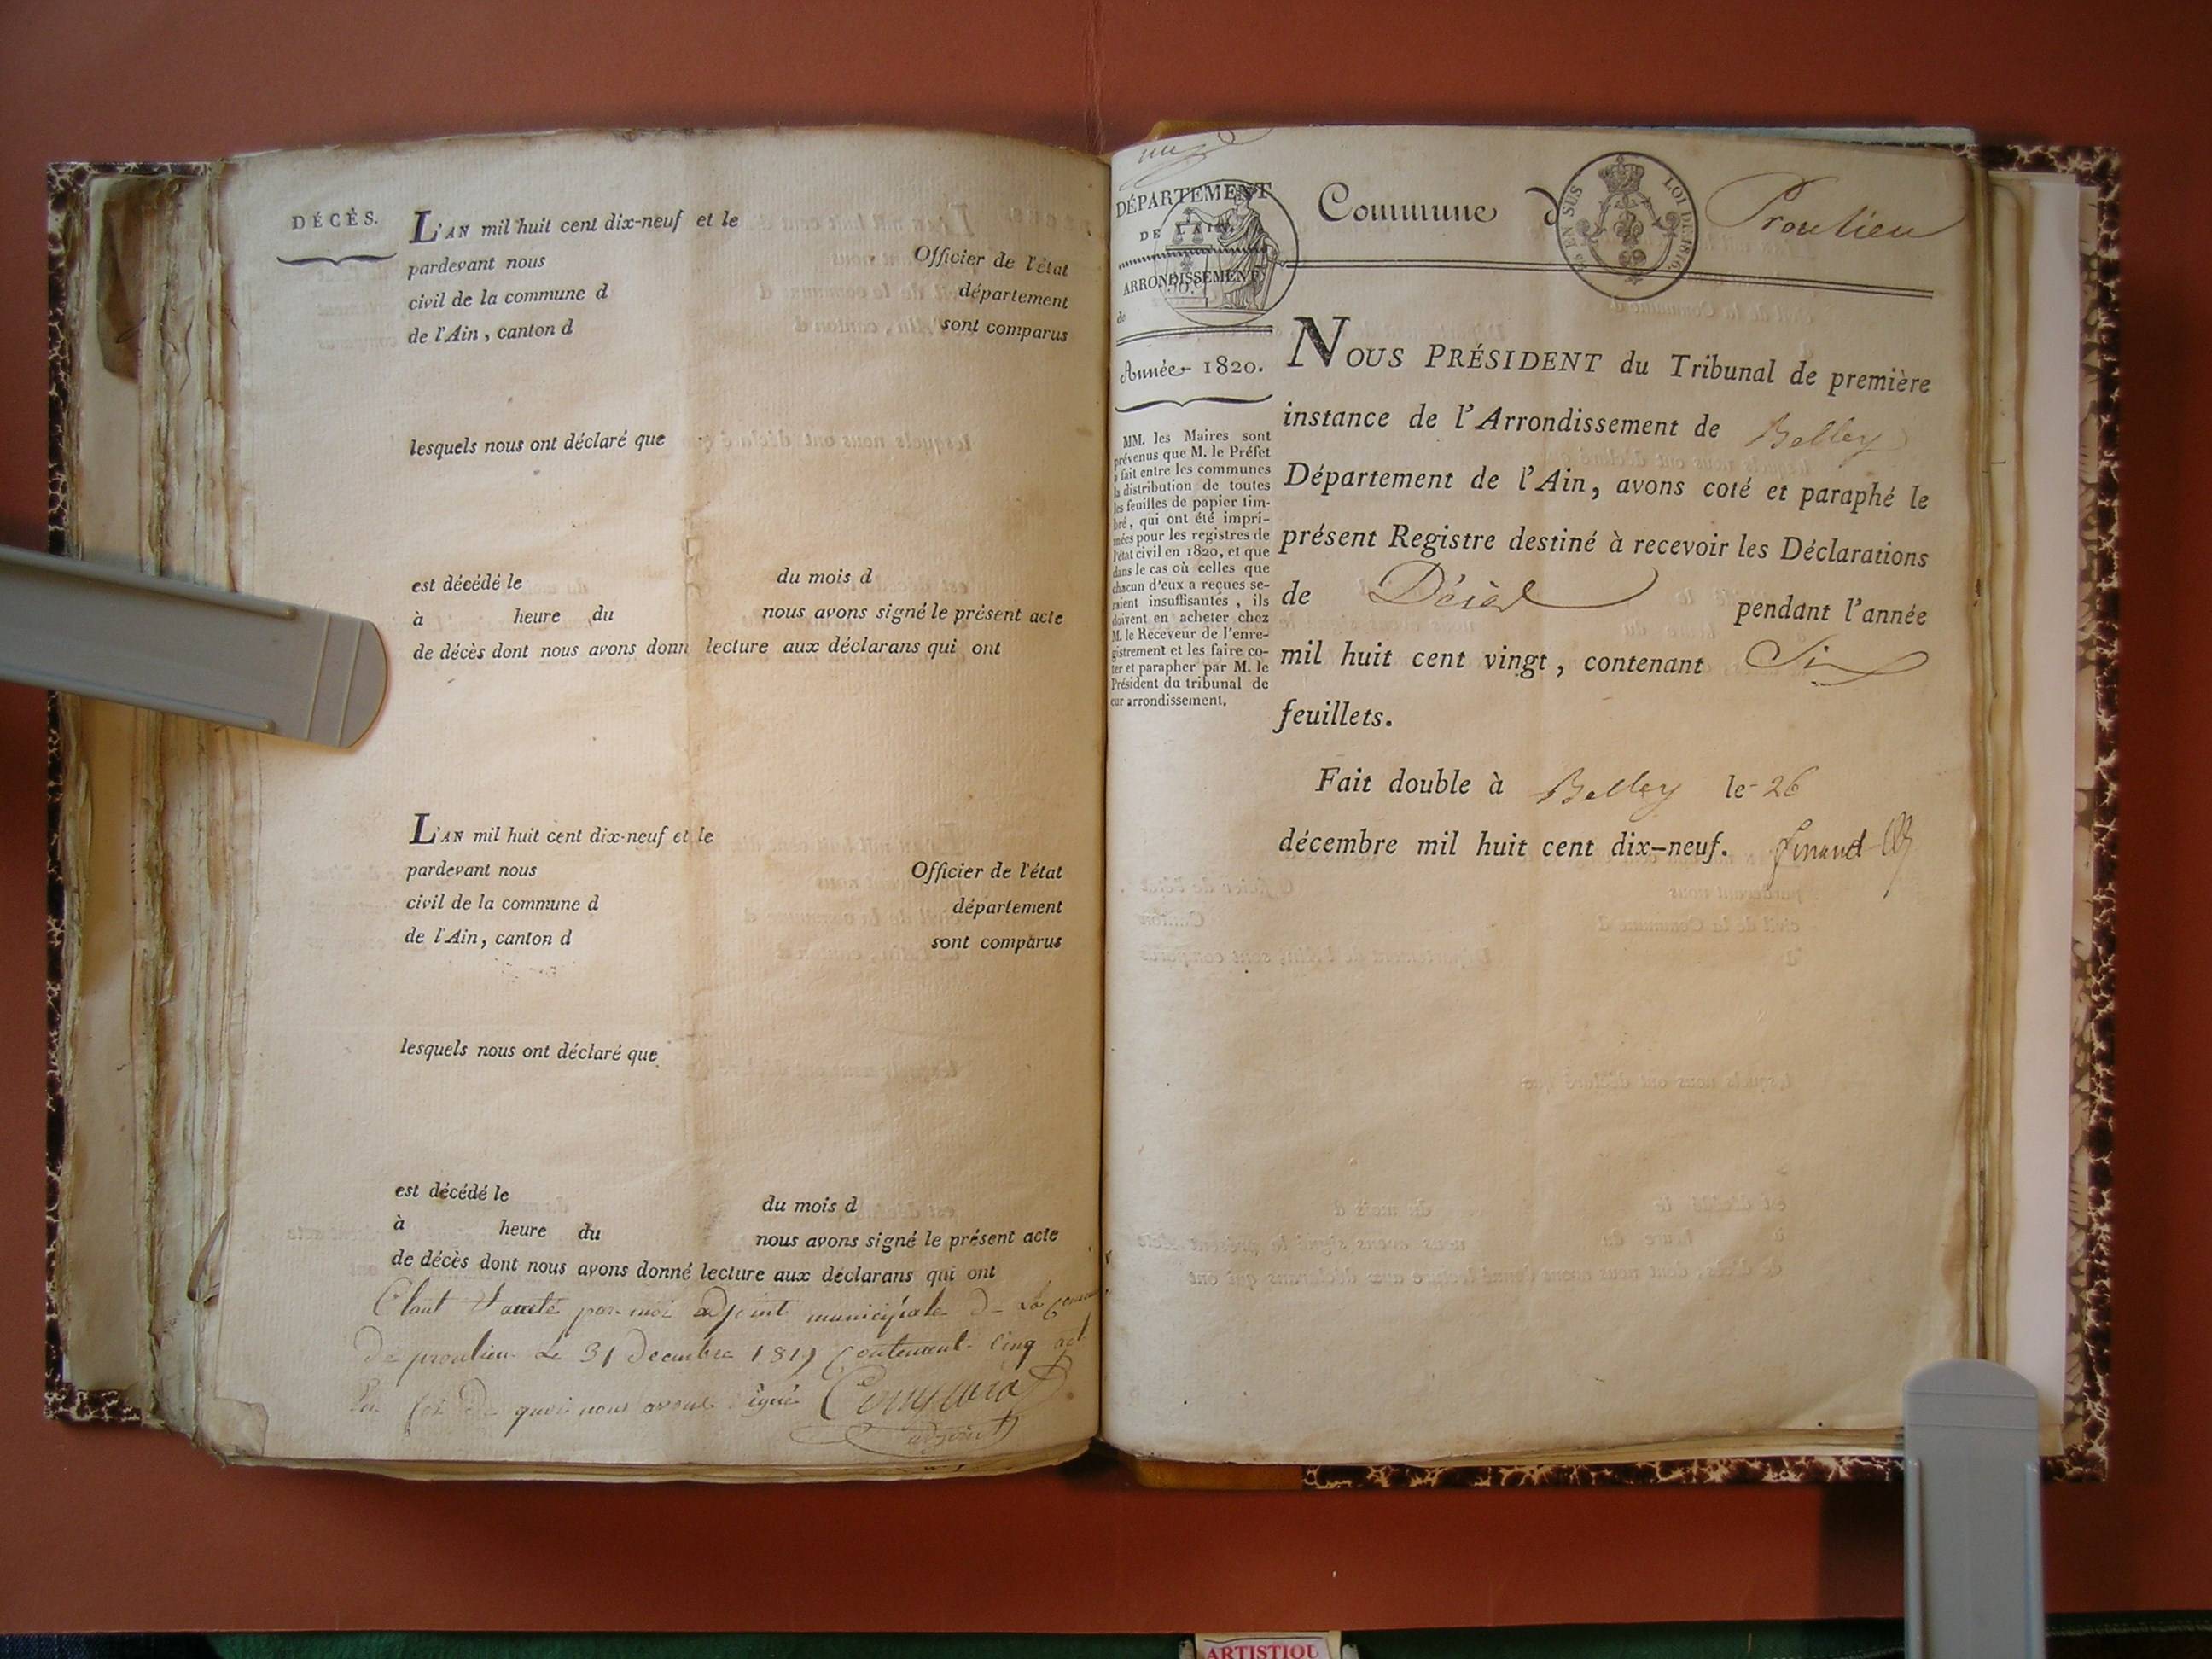 DÉCÈS.
L'AN mil huit cent dix-neuf et le
pardevant nous Officier de l'état
civil de la commune d département
de l'Ain, canton d sont comparus
lesquels nous ont déclaré que
est décédé le du mois d
à heure du nous avons signé le présent acte
de décès dont nous avons donn lecture aux déclarans qui ont
L'AN mil huit cent dix-neuf et le
pardevant nous Officier de l'état
civil de la commune d département
de l'Ain, canton d sont comparus
lesquels nous ont déclaré que
est décédé le du mois d
à heure du nous avons signé le présent acte
de décès dont nous avons donné lecture aux déclarans qui ont
Clout par moi adjoint municipale de la
de proulieu Le 31 Decembre 1819 Contenant Cinq act
En foi De quoi nous avons signé
adjoint
DÉPARTEMENT
DE L'AIN.
ARRONDISSEMENT
de
Année 1820.
MM. les Maires sont
prévenus que M. le Préfet
a fait entre les communes
la distribution de toutes
les feuilles de papier tim-
bré, qui ont été impri-
mées pour les registres de
l'état civil en 1820, et que
dans le cas où celles que
chacun d'eux a reçues se-
raient insuffisantes, ils
doivent en acheter chez
M. le Receveur de l'enre-
gistrement et les faire co-
ter et parapher par M. le
Président du tribunal de
eur arrondissement.
Commune d Proulieu
EN SUS LOI DE 1816
NOUS PRÉSIDENT du Tribunal de première
instance de l'Arrondissement de Belley
Département de l'Ain, avons coté et paraphé le
présent Registre destiné à recevoir les Déclarations
de Décès pendant l'année
mil huit cent vingt, contenant Six
feuillets.
Fait double à Belley le 26
décembre mil huit cent dix-neuf.
ARTISTIQU